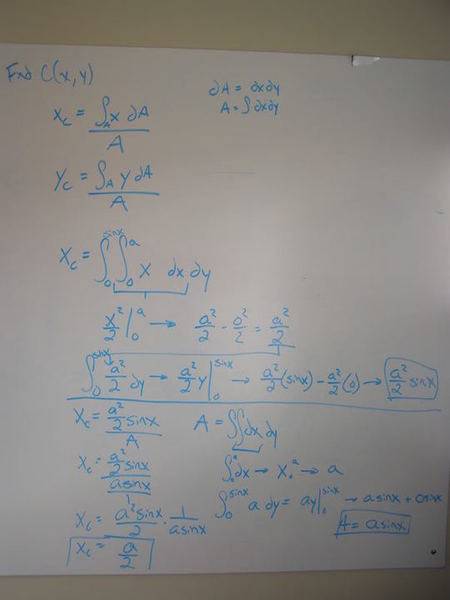 Find C(x,y)
∂A = ∂x∂y
A = ∫∂x∂y
Xc = ∫A x ∂A / A
Yc = ∫A y ∂A / A
Xc = ∫0^sinx ∫0^a x ∂x ∂y
x²/2 |0^a → a²/2 - 0²/2 = a²/2
∫0^sinx a²/2 dy → a²/2 y |0^sinx → a²/2 (sinx) - a²/2 (0) → a²/2 sinx
Xc = a²/2 sinx / A
A = ∫∫ dx dy
Xc = a²/2 sinx / asinx
∫0^a dx → X0^a → a
Xc = a² sinx / 2 · 1 / asinx
∫0^sinx a dy = ay |0^sinx → asinx + 0sinx
A = asinx
Xc = a/2